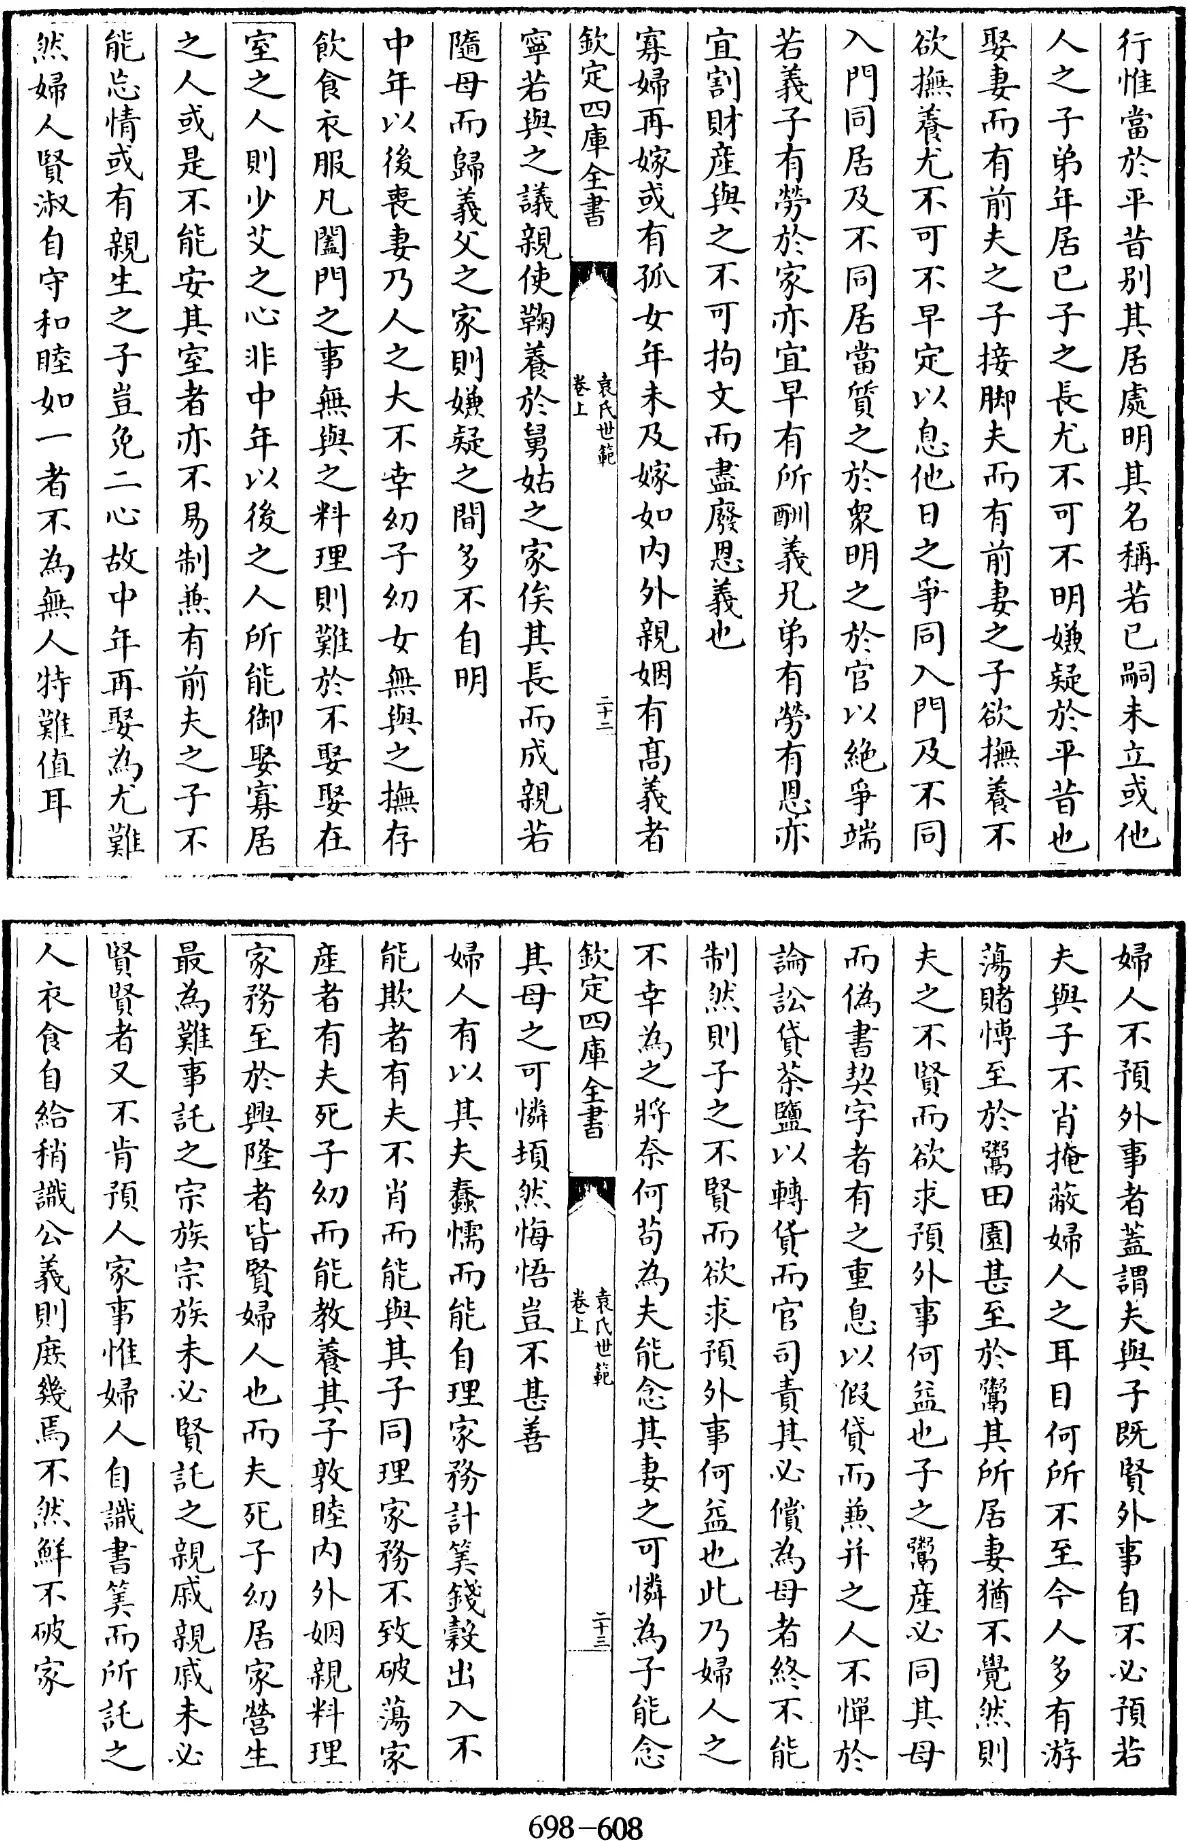 行惟當於平昔别其居處明其名稱若已嗣未立或他
人之子弟年居已子之長尤不可不明嫌疑於平昔也
娶妻而有前夫之子接脚夫而有前妻之子欲撫養不
欲撫養尤不可不早定以息他日之爭同入門及不同
入門同居及不同居當質之於衆明之於官以絶爭端
若義子有勞於家亦宜早有所酬義兄弟有勞有恩亦
宜割財産與之不可拘文而盡廢恩義也
寡婦再嫁或有孤女年未及嫁如内外親姻有高義者
欽定四庫全書
袁氏世範
卷上
二十二
寧若與之議親使鞠養於舅姑之家俟其長而成親若
隨母而歸義父之家則嫌疑之間多不自明
中年以後喪妻乃人之大不幸幼子幼女無與之撫存
飲食衣服凡闔門之事無與之料理則難於不娶娶在
室之人則少艾之心非中年以後之人所能御娶寡居
之人或是不能安其室者亦不易制兼有前夫之子不
能忘情或有親生之子豈免二心故中年再娶為尤難
然婦人賢淑自守和睦如一者不為無人特難值耳
婦人不預外事者蓋謂夫與子既賢外事自不必預若
夫與子不肖掩蔽婦人之耳目何所不至今人多有游
蕩賭博至於鬻田園甚至於鬻其所居妻猶不覺然則
夫之不賢而欲求預外事何益也子之鬻産必同其母
而偽書契字者有之重息以假貸而兼并之人不憚於
論訟貸茶鹽以轉貨而官司責其必償為母者終不能
制然則子之不賢而欲求預外事何益也此乃婦人之
不幸為之將奈何苟為夫能念其妻之可憐為子能念
欽定四庫全書
袁氏世範
卷上
二十三
其母之可憐頓然悔悟豈不甚善
婦人有以其夫蠢懦而能自理家務計筭錢穀出入不
能欺者有夫不肖而能與其子同理家務不致破蕩家
産者有夫死子幼而能教養其子敦睦内外姻親料理
家務至於興隆者皆賢婦人也而夫死子幼居家營生
最為難事託之宗族宗族未必賢託之親戚親戚未必
賢賢者又不肯預人家事惟婦人自識書筭而所託之
人衣食自給稍識公義則庶幾焉不然鮮不破家
698-608